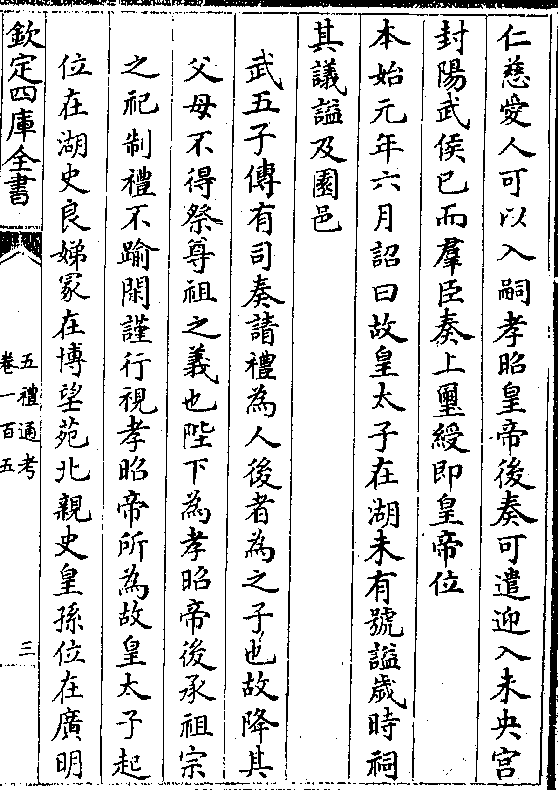 仁慈愛人可以入嗣孝昭皇帝後奏可遣迎入未央宮
封陽武侯已而羣臣奏上璽綬即皇帝位
本始元年六月詔曰故皇太子在湖未有號諡歲時祠
其議諡及園邑
武五子傳有司奏請禮為人後者為之子也故降其
父母不得祭尊祖之義也陛下為孝昭帝後承祖宗
之祀制禮不踰閑謹行視孝昭帝所為故皇太子起
位在湖史良娣冢在博望苑北親史皇孫位在廣明
欽定四庫全書
五禮通考
卷一百五
三